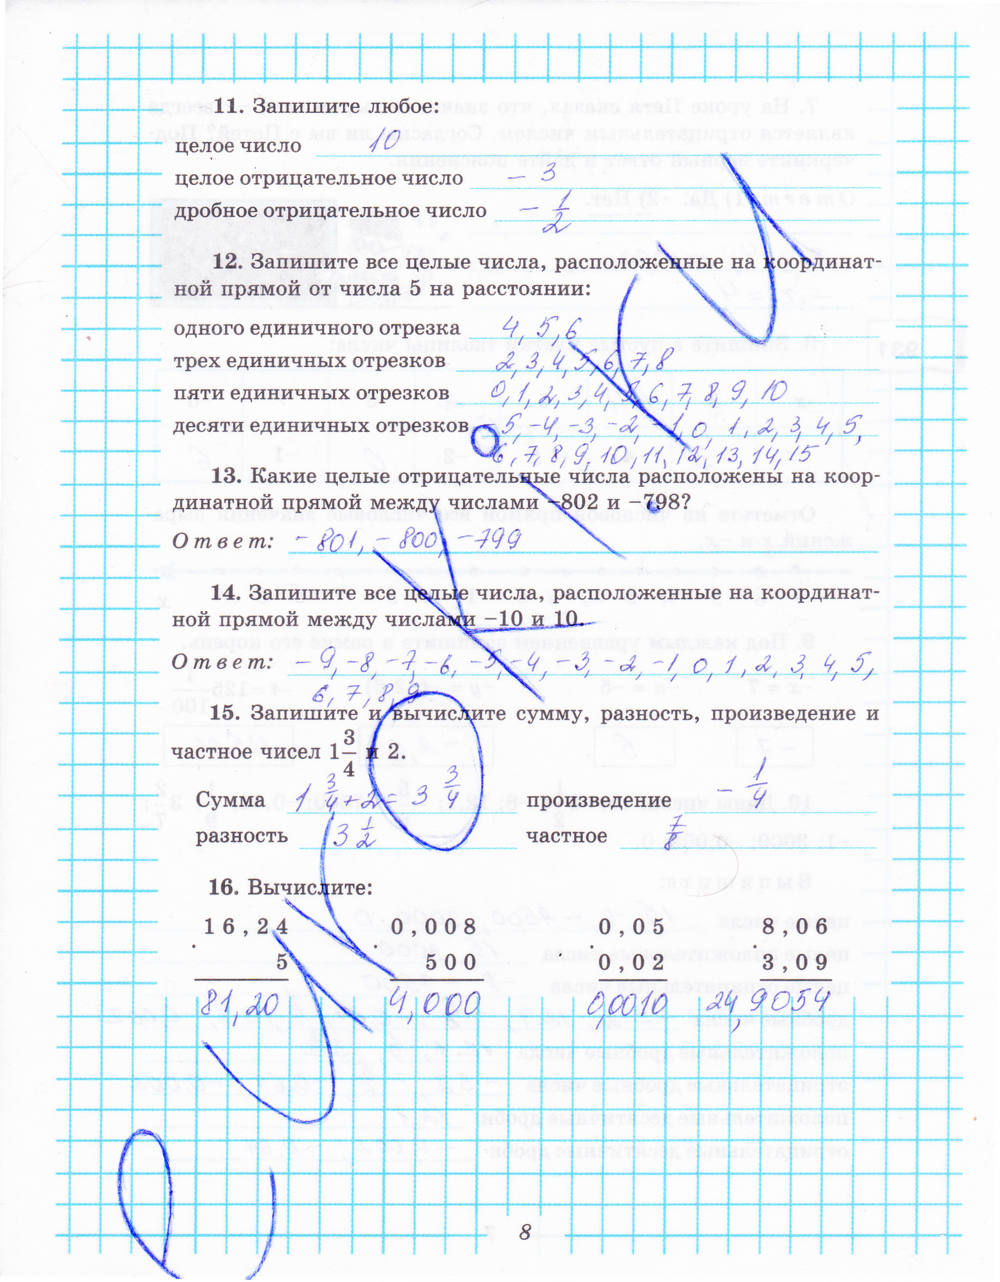 11. Запишите любое:
целое число 10
целое отрицательное число – 3
дробное отрицательное число – 1/2
12. Запишите все целые числа, расположенные на координат-
ной прямой от числа 5 на расстоянии:
одного единичного отрезка 4, 5, 6
трех единичных отрезков 2, 3, 4, 5, 6, 7, 8
пяти единичных отрезков 0, 1, 2, 3, 4, 5, 6, 7, 8, 9, 10
десяти единичных отрезков –5, –4, –3, –2, –1, 0, 1, 2, 3, 4, 5,
6, 7, 8, 9, 10, 11, 12, 13, 14, 15
13. Какие целые отрицательные числа расположены на коор-
динатной прямой между числами –802 и –798?
Ответ: –801, –800, –799
14. Запишите все целые числа, расположенные на координат-
ной прямой между числами –10 и 10.
Ответ: –9, –8, –7, –6, –5, –4, –3, –2, –1, 0, 1, 2, 3, 4, 5,
6, 7, 8, 9
15. Запишите и вычислите сумму, разность, произведение и
частное чисел 1 3/4 и 2.
Сумма 1 3/4 + 2 = 3 3/4 произведение – 1/4
разность 3 1/2 частное 7/8
16. Вычислите:
16,24 0,008 0,05 8,06
· 5 · 500 · 0,02 · 3,09
81,20 4,000 0,0010 24,9054
8